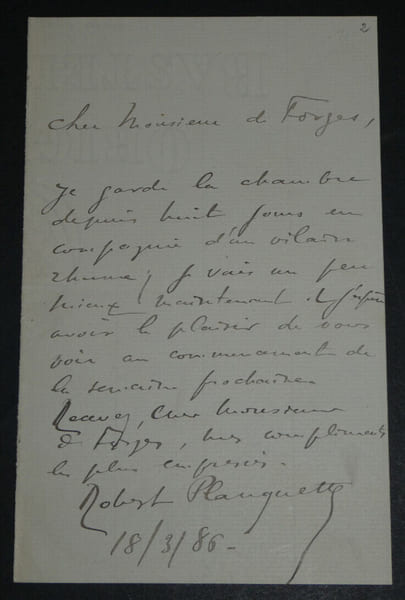 2
Cher Monsieur de Forges,
Je garde la chambre
depuis huit jours en
compagnie d'un vilain
rhume; je vais un peu
mieux maintenant et j'espère
avoir le plaisir de vous
voir au commencement de
la semaine prochaine.
Recevez, cher Monsieur
de Forges, mes compliments
les plus empressés.
Robert Planquette
18/3/86-